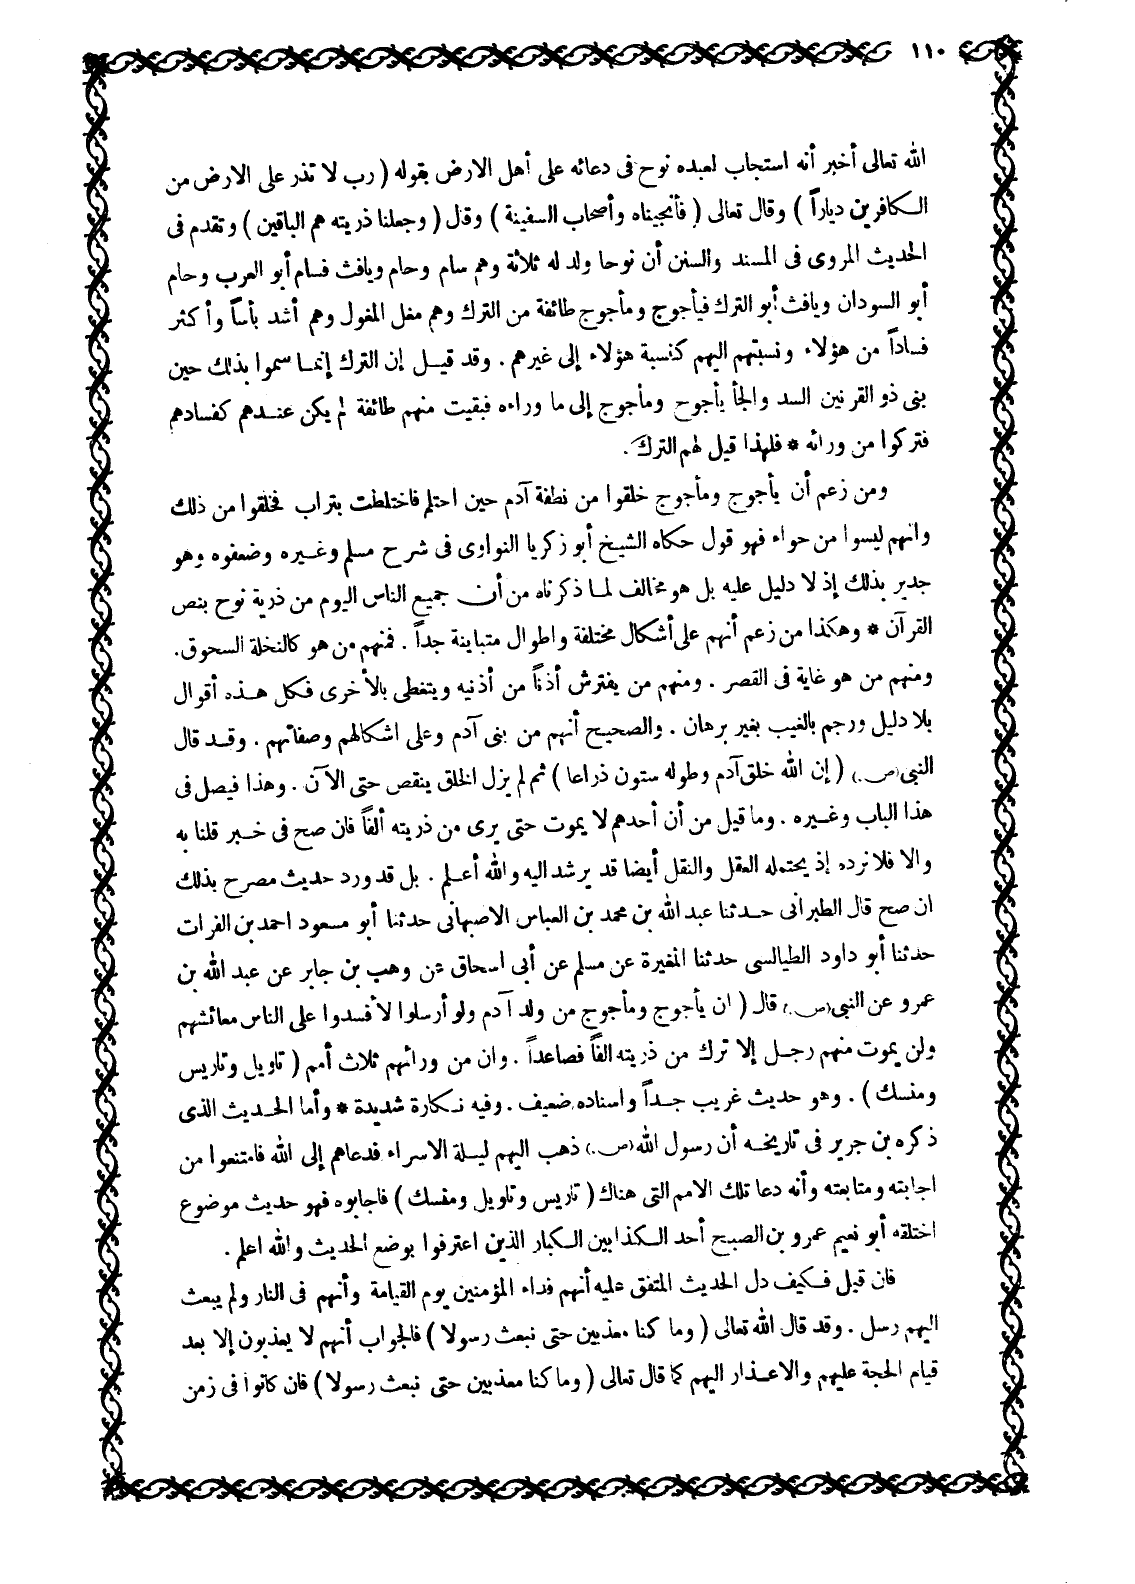 ١١٠
الله تعالى أخبر أنه استجاب لعبده نوح فى دعائه على أهل الارض بقوله ( رب لا تذر على الارض من
الكافرين دياراً ) وقال تعالى ( فأنجيناه وأصحاب السفينة ) وقل ( وجعلنا ذريته هم الباقين ) وتقدم فى
الحديث المروى فى المسند والسنن أن نوحا ولد له ثلاثة وهم سام وحام ويافث فسام أبو العرب وحام
أبو السودان ويافث أبو الترك فيأجوج ومأجوج طائفة من الترك وهم مغل المغول وهم أشد بأساً وأكثر
فساداً من هؤلاء ونسبتهم اليهم كنسبة هؤلاء إلى غيرهم . وقد قيل إن الترك إنما سموا بذلك حين
بنى ذو القرنين السد والجأ يأجوج ومأجوج إلى ما وراءه فبقيت منهم طائفة لم يكن عندهم كفسادهم
فتركوا من ورائه * فلهذا قيل لهم الترك .
ومن زعم أن يأجوج ومأجوج خلقوا من نطفة آدم حين احتلم فاختلطت بتراب فخلقوا من ذلك
وانهم ليسوا من حواء فهو قول حكاه الشيخ أبو زكريا النواوى فى شرح مسلم وغيره وضعفوه وهو
جدير بذلك إذ لا دليل عليه بل هو مخالف لما ذكرناه من أن جميع الناس اليوم من ذرية نوح بنص
القرآن * وهكذا من زعم أنهم على أشكال مختلفة واطوال متباينة جداً . فمنهم من هو كالنخلة السحوق.
ومنهم من هو غاية فى القصر . ومنهم من يفترش أذناً من أذنيه ويتغطى بالأخرى فكل هذه أقوال
بلا دليل ورجم بالغيب بغير برهان . والصحيح أنهم من بنى آدم وعلى اشكالهم وصفاتهم . وقد قال
النبى (ص.) ( إن الله خلق آدم وطوله ستون ذراعا ) ثم لم يزل الخلق ينقص حتى الآن . وهذا فيصل فى
هذا الباب وغيره . وما قيل من أن أحدهم لا يموت حتى يرى من ذريته ألفاً فان صح فى خبر قلنا به
والا فلا نرده إذ يحتمله العقل والنقل أيضا قد يرشد اليه والله أعلم . بل قد ورد حديث مصرح بذلك
ان صح قال الطبرانى حدثنا عبد الله بن محمد بن العباس الاصبهانى حدثنا أبو مسعود احمد بن الفرات
حدثنا أبو داود الطيالسى حدثنا المغيرة عن مسلم عن أبى اسحاق عن وهب بن جابر عن عبد الله بن
عمرو عن النبى (ص.) قال ( ان يأجوج ومأجوج من ولد آدم ولو أرسلوا لأفسدوا على الناس معائشهم
ولن يموت منهم رجل إلا ترك من ذريته الفاً فصاعداً . وان من ورائهم ثلاث أمم ( تاويل وتاريس
ومنسك ) . وهو حديث غريب جداً واسناده ضعيف . وفيه نكارة شديدة * وأما الحديث الذى
ذكره بن جرير فى تاريخه أن رسول الله (ص.) ذهب اليهم ليلة الاسراء فدعاهم إلى الله فامتنعوا من
اجابته ومتابعته وأنه دعا تلك الامم التى هناك ( تاريس وتاويل ومنسك ) فاجابوه فهو حديث موضوع
اختلقه أبو نعيم عمرو بن الصبح أحد الكذابين الكبار الذين اعترفوا بوضع الحديث والله اعلم .
فان قيل فكيف دل الحديث المتفق عليه أنهم فداء المؤمنين يوم القيامة وأنهم فى النار ولم يبعث
اليهم رسل . وقد قال الله تعالى ( وما كنا معذبين حتى نبعث رسولا ) فالجواب أنهم لا يعذبون إلا بعد
قيام الحجة عليهم والاعذار اليهم كما قال تعالى ( وما كنا معذبين حتى نبعث رسولا ) فان كانوا فى زمن